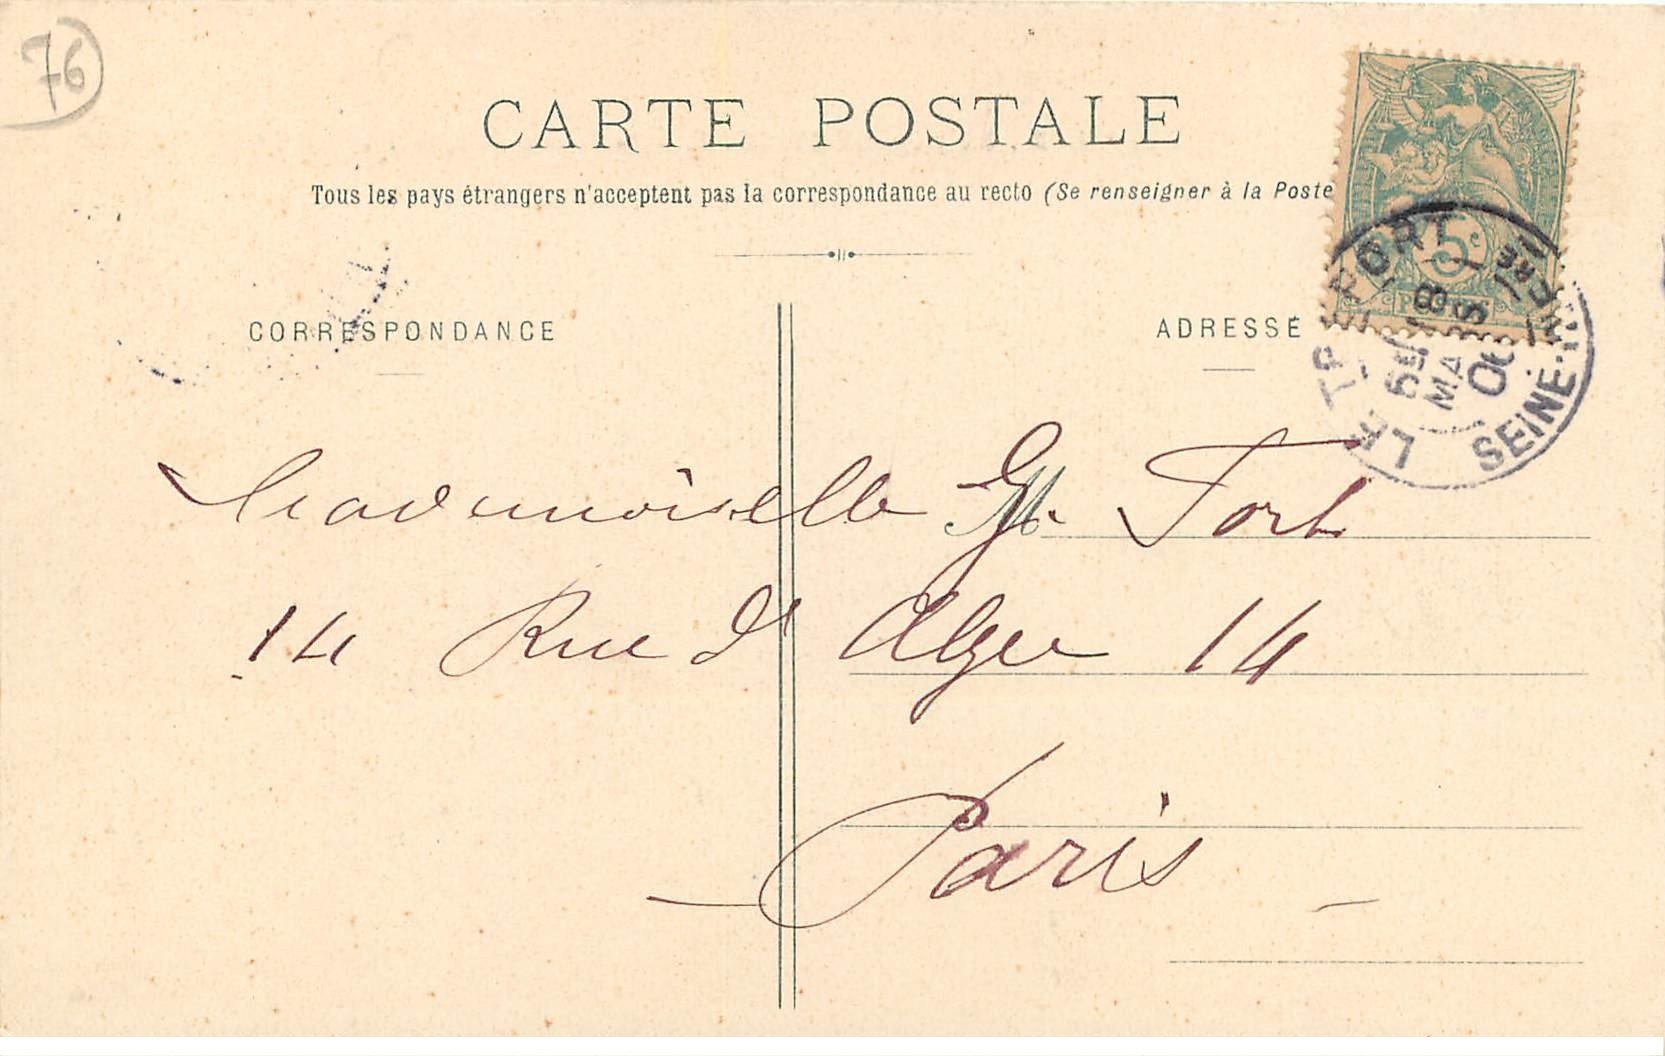 76
CARTE POSTALE
Tous les pays étrangers n'acceptent pas la correspondance au recto (Se renseigner à la Poste
CORRESPONDANCE
ADRESSE
5c
LE TREPORT
SEINE-INFRE
18
MA
Mademoiselle G. Fort
14 Rue d'Alger 14
Paris